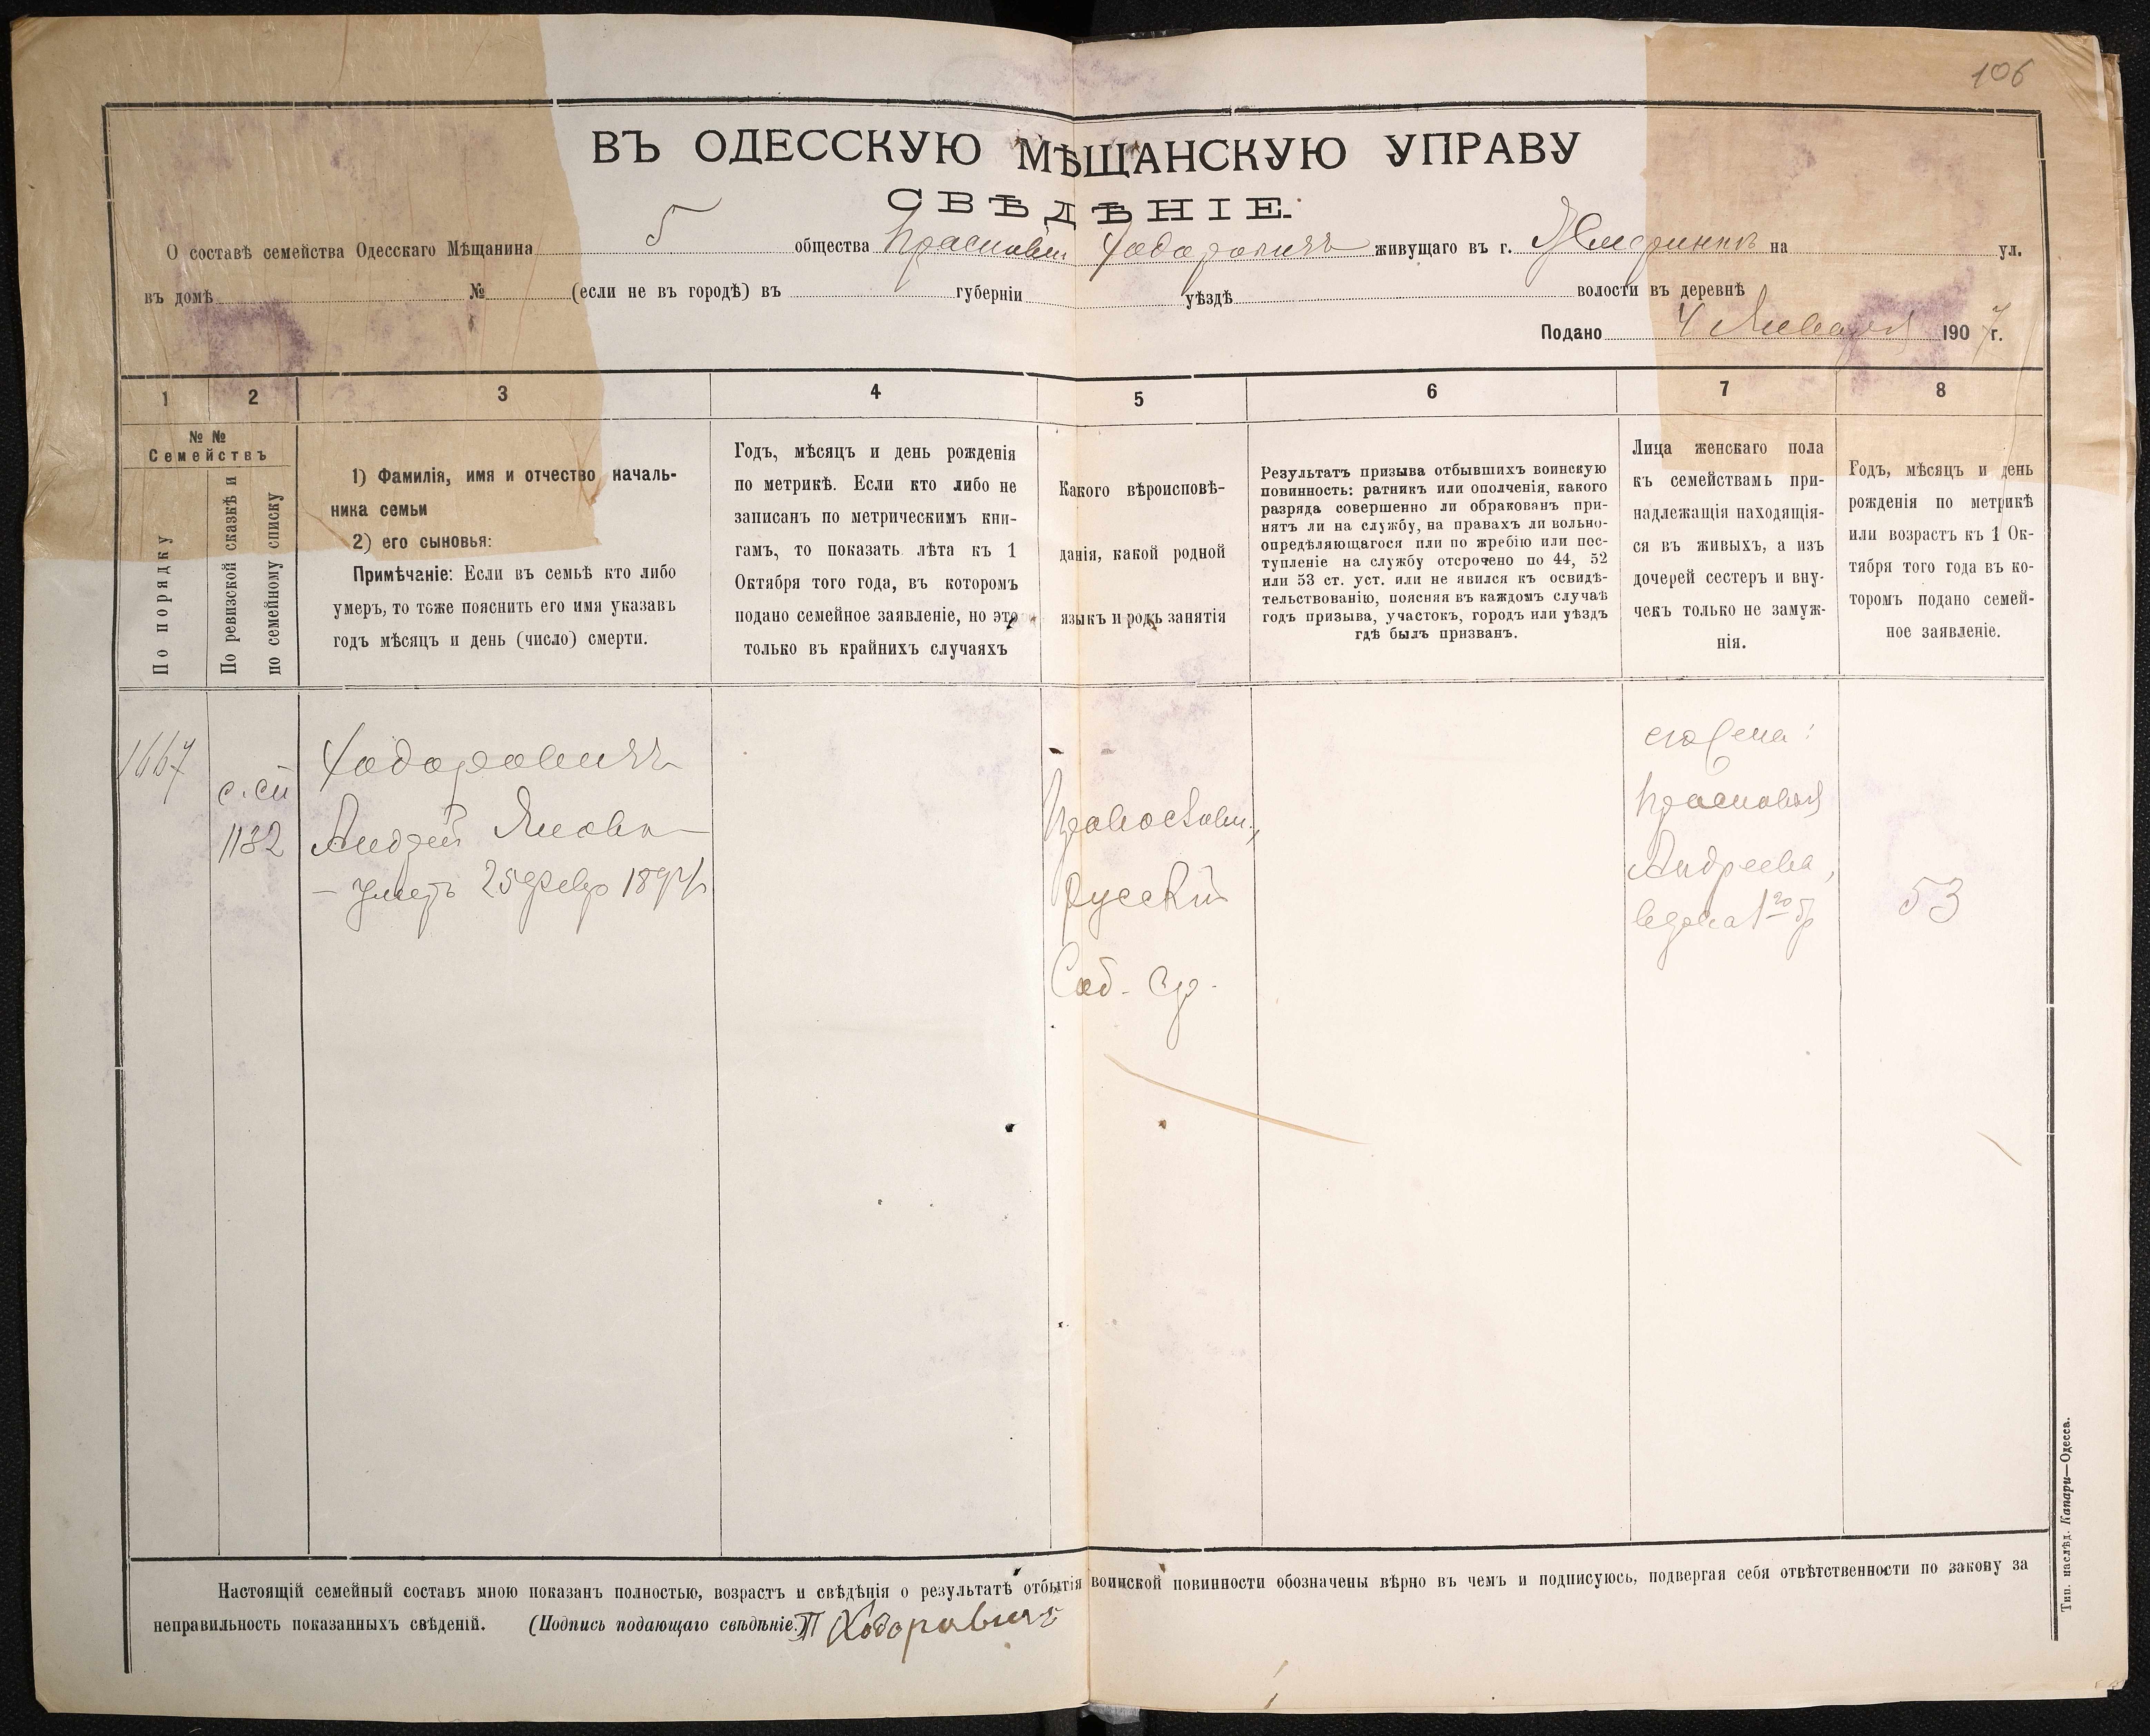 106
ВЪ ОДЕССКУЮ МѢЩАНСКУЮ УПРАВУ
СВѢДѢНІЕ.
О составѣ семейства Одесскаго Мѣщанина 5 общества Ходоровичъ живущаго въ г. Жмеринкѣ на ул.
въ домѣ № (если не въ городѣ) въ губерніи уѣздѣ волости въ деревнѣ
Подано 4 Января 1907 г.
1 2 3 4 5 6 7 8
№ №
Семействъ
По порядку
По ревизской сказкѣ и
по семейному списку
1) Фамилія, имя и отчество началь-
ника семьи
2) его сыновья:
Примѣчаніе: Если въ семьѣ кто либо
умеръ, то тоже пояснить его имя указавъ
годъ мѣсяцъ и день (число) смерти.
Годъ, мѣсяцъ и день рожденія
по метрикѣ. Если кто либо не
записанъ по метрическимъ кни-
гамъ, то показать лѣта къ 1
Октября того года, въ которомъ
подано семейное заявленіе, но это
только въ крайнихъ случаяхъ
Какого вѣроисповѣ-
данія, какой родной
языкъ и родъ занятія
Результатъ призыва отбывшихъ воинскую
повинность: ратникъ или ополченія, какого
разряда совершенно ли обракованъ при-
нятъ ли на службу, на правахъ ли вольно-
опредѣляющагося или по жребію или пос-
тупленіе на службу отсрочено по 44, 52
или 53 ст. уст. или не явился къ освидѣ-
тельствованію, поясняя въ каждомъ случаѣ
годъ призыва, участокъ, городъ или уѣздъ
гдѣ былъ призванъ.
Лица женскаго пола
къ семействамъ при-
надлежащія находящія-
ся въ живыхъ, а изъ
дочерей сестеръ и вну-
чекъ только не замуж-
нія.
Годъ, мѣсяцъ и день
рожденія по метрикѣ
или возрастъ къ 1 Ок-
тября того года въ ко-
торомъ подано семей-
ное заявленіе.
1667
с. сп
1132
Ходоровичъ
Андрей Яковл
— умеръ 25 февр
Православн.,
русскій
Соб. ср.
его жена:
Андреева,
вдова 1го бр
53
Настоящій семейный составъ мною показанъ полностью, возрастъ и свѣдѣнія о результатѣ отбытія воинской повинности обозначены вѣрно въ чемъ и подписуюсь, подвергая себя отвѣтственности по закону за
неправильность показанныхъ свѣденій. (Подпись подающаго свѣдѣніе.) П Ходоровичъ
Тип. наслѣд. Капари—Одесса.